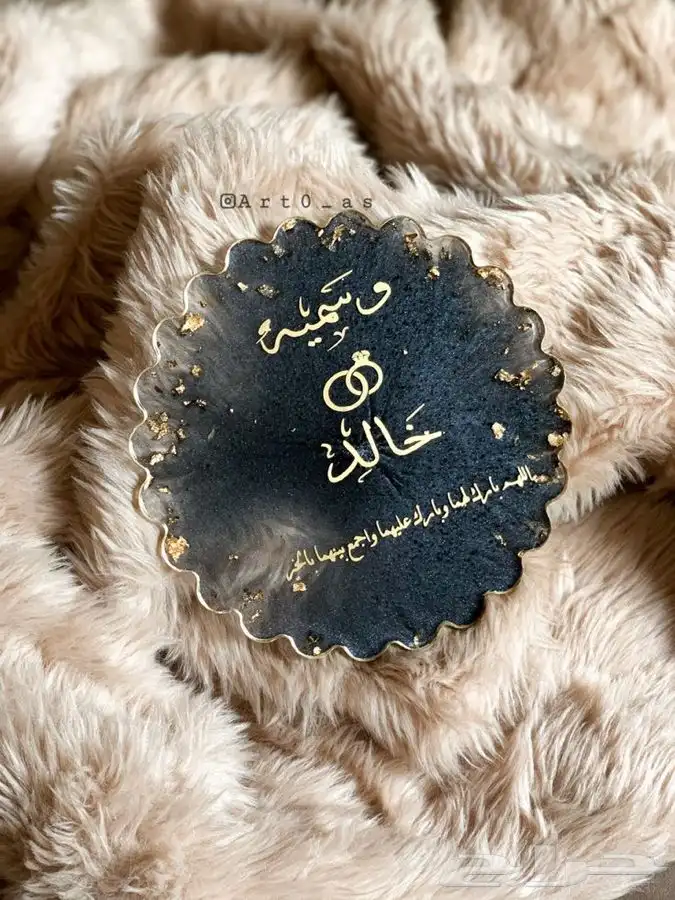 @Art0_as
وسميه
خالد
اللهم بارك لهما وبارك عليهما واجمع بينهما بالخير
حراج